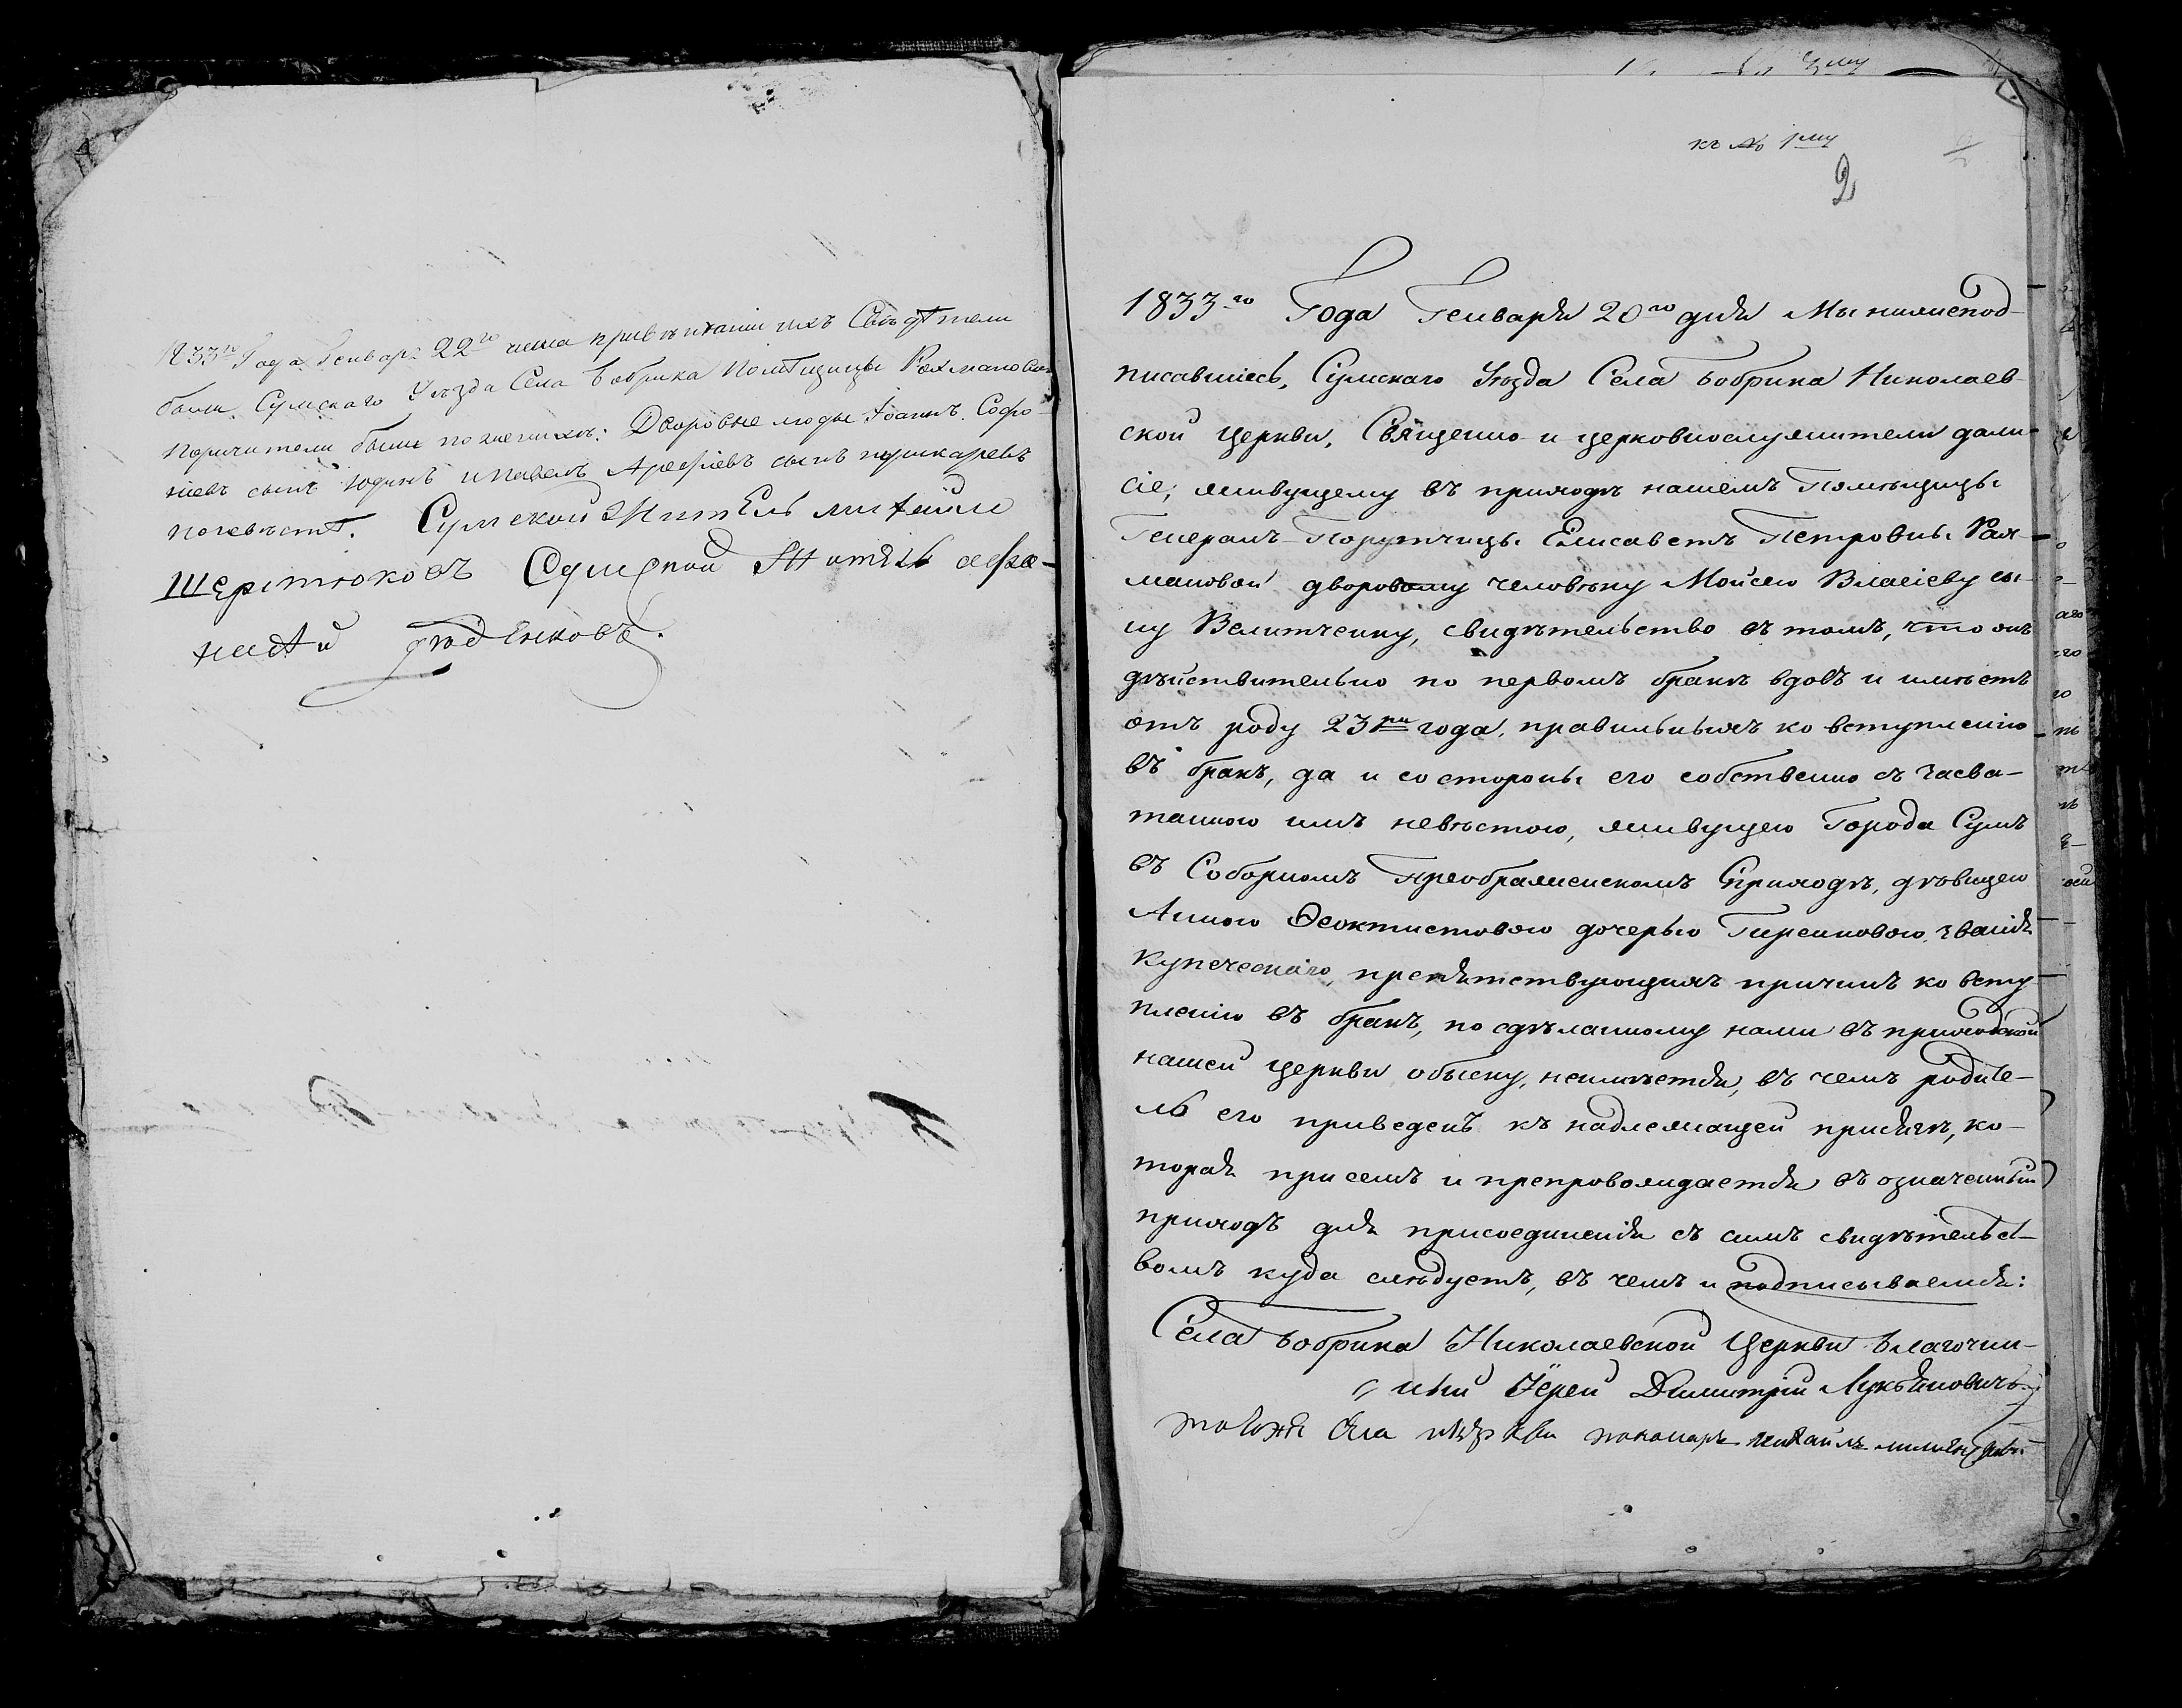 1833го Года Генваря 22го числа при венчании ихъ Свидѣтели
были Сумскаго Уѣзда Села Бобрика Помѣщицы Рахмановой
Поручители были по женихѣ: Дворовые люды Іоаннъ Софро-
ніевъ сынъ Юдинъ и Павелъ Арефіевъ сынъ пушкаревъ
по невѣстѣ. Сумской Житель
Шерстюковъ Сумской Житель афа-
насій
къ № 1му
2
1833го Года Генваря 20го дня Мы нижепод-
писавшіесь, Сумскаго Уѣзда Села Бобрика Николаев-
ской церкви, Священно- и церковнослужители дали
сіе; живущему въ приходѣ нашемъ Помѣщицы
Генералъ-Порутчицы Елисаветъ Петровны Рах-
мановой дворовому человѣку Мойсею Власіеву сы-
ну Велитченку, свидѣтельство въ томъ, что онъ
дѣйствительно по первомъ бракѣ вдовъ и имѣетъ
отъ роду 23ри года, правильныхъ ко вступленію
въ бракъ, да и со стороны его собственно съ засва-
танною имъ невѣстою, живущею Города Сумъ
въ Соборномъ Преображенскомъ Приходѣ, дѣвицею
Анною Ѳеоктистовою дочерью Гиренковою, званія
купеческаго, препятствующихъ причинъ ко всту-
пленію въ бракъ, по сдѣланному нами въ приходской
нашей церкви обыску, неимѣется, въ чемъ родите-
ль его приведенъ къ надлежащей присягѣ, ко-
торая при семъ и препровождается въ означенный
приходъ для присоединенія съ симъ свидѣтельст-
вомъ куда слѣдуетъ, въ чемъ и подписываемся:
Села Бобрика Николаевской Церкви Благочин-
ный Іерей Димитрій Лукьяновичъ
тоеже церкви пономарь михаилъ